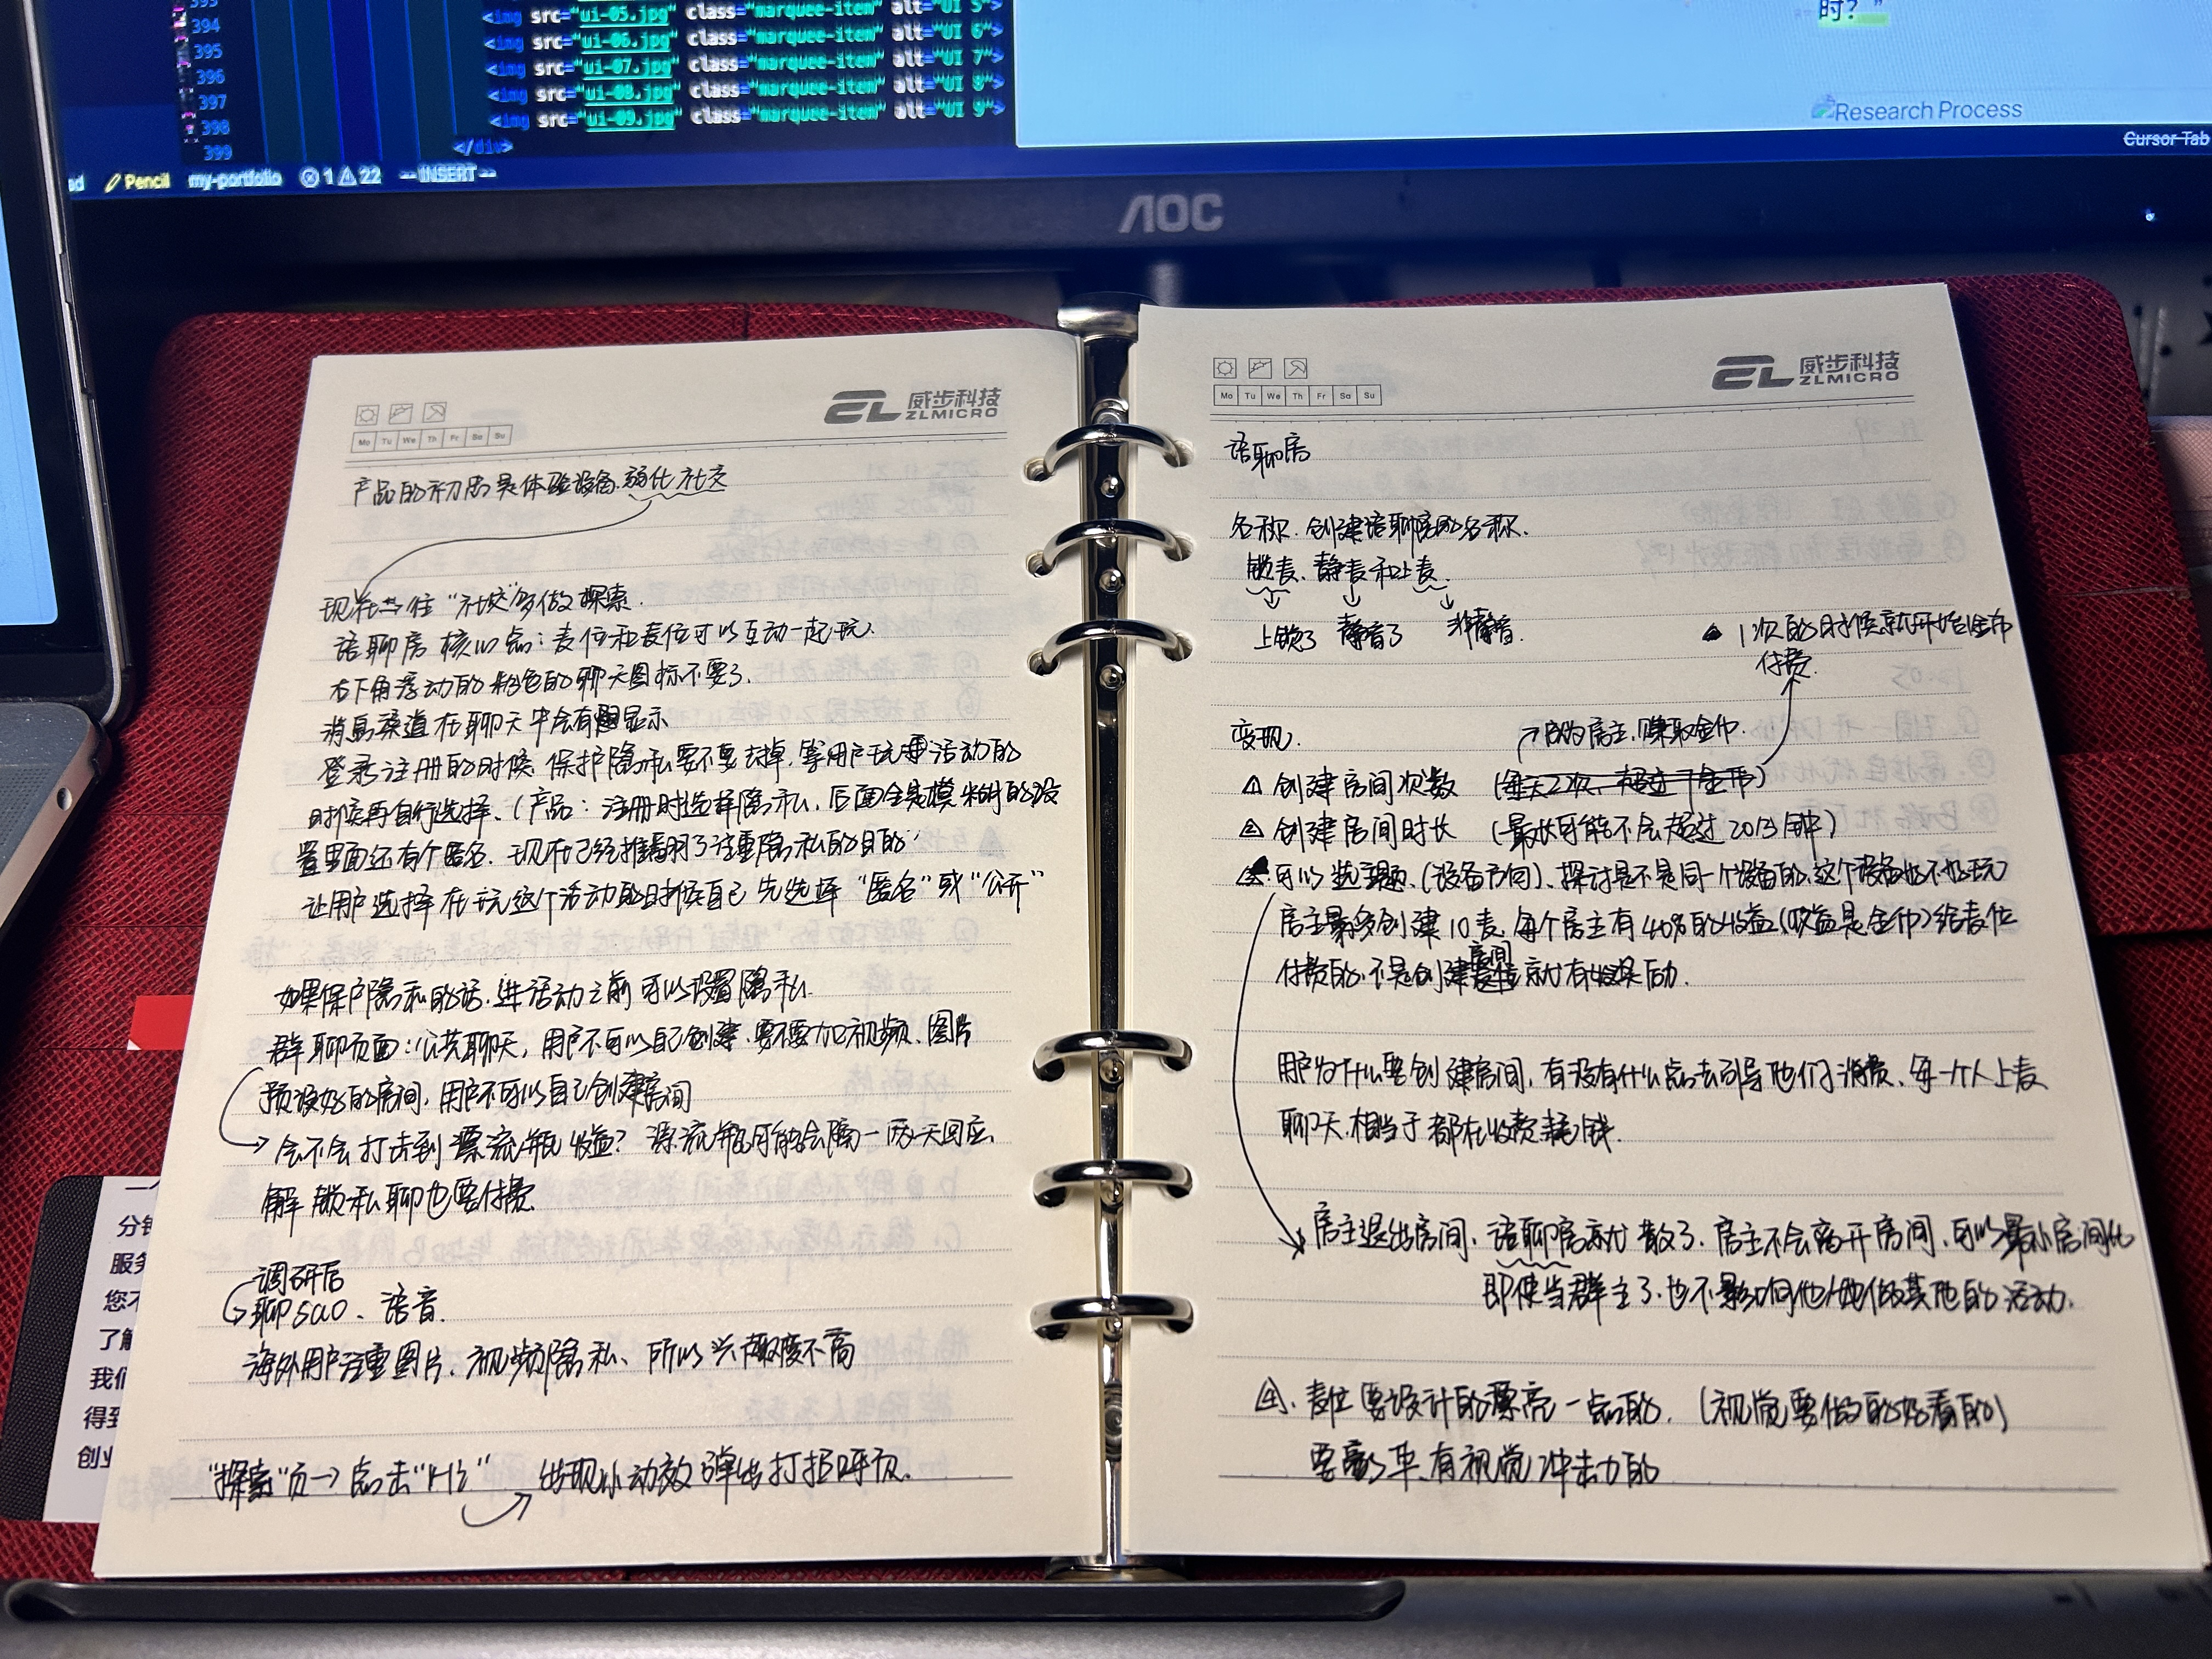 393
<img src="ui-05.jpg" class="marquee-item" alt="UI 5">
394
<img src="ui-06.jpg" class="marquee-item" alt="UI 6">
395
<img src="ui-07.jpg" class="marquee-item" alt="UI 7">
396
<img src="ui-08.jpg" class="marquee-item" alt="UI 8">
397
<img src="ui-09.jpg" class="marquee-item" alt="UI 9">
398
</div>
399
Pencil my-portfolio 1 22 -- INSERT --
时？”
Research Process
Cursor Tab
AOC
威步科技
ZLMICRO
Mo Tu We Th Fr Sa Su
产品的初衷是体验设备.弱化社交
现在 往“社交”多做探索.
语聊房核心点：麦位和麦位可以互动一起玩.
右下角浮动的粉色的聊天图标不要了.
消息渠道在聊天中会有 显示
登录注册的时候.保护隐私要不要去掉.等用户玩 活动的
时候再自行选择.(产品：注册时选择隐私.后面全是模糊的设
置里面还有个匿名.现在已经 明了注重隐私的目的
让用户选择在玩这个活动的时候自己先选择“匿名”或“公开”
如果保护隐私的话.进活动之前可以设置隐私.
群聊页面：公共聊天，用户不可以自己创建.要不要加视频、图片
预设好的房间，用户不可以自己创建房间
会不会打击到漂流瓶收益？漂流瓶可能会隔一两天回应、
解锁私聊也要付费.
调研后
聊sao、语音.
海外用户注重图片、视频隐私、所以兴趣度不高
“探索”页→点击“Hi” 出现小动效弹出打招呼页.
威步科技
ZLMICRO
Mo Tu We Th Fr Sa Su
语聊房
名称.创建语聊房的名称.
锁麦、静麦和上麦.
上锁了 静音了 非静音.
1次的时候就开始金币
付费.
变现.
成为房主.赚取金币.
1 创建房间次数 (每天2次、超过 金币)
2 创建房间时长 (最长可能不会超过20分钟)
可以选主题、(设备方向)、探讨是不是同一个设备的.这个设备好不好玩
房主最多创建10麦.每个房主有40%的收益(收益是金币)给麦位
房间
付费的.不是创建麦位就有奖励.
用户为什么要创建房间，有没有什么点去引导他们消费、每一个人上麦
聊天.相当于都在收费耗钱.
房主退出房间、语聊房就散了.房主不会离开房间、可以最小房间化
即使当群主了.也不影响他/她做其他的活动.
4.麦位要设计的漂亮一点的.(视觉要做的好看的)
要豪华.有视觉冲击力的
分钟
服务
您不
了解
我们
得到
创业